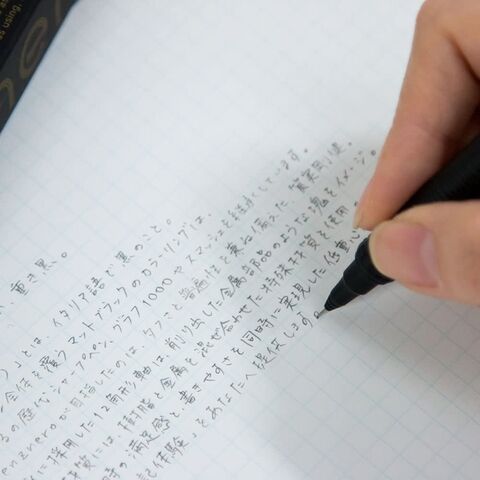 s using.
重き黒。
」とは、イタリア語で黒のこと。
全体を覆うマットブラックのカラーリングは、
るの歴代シャープペン、グラフ1000やスマッシュを手描きしています。
enzneroが目指したのは、タフさと普遍性を兼ね備えた、質実剛健。
に採用した12角形軸は、削り出した金属部品のような塊をイメージ。
材質には、樹脂と金属を混ぜ合わせた特殊材質を使用。
時の満足感と、書きやすさを同時に実現した低重心
記体験をあなたへ提供しますの